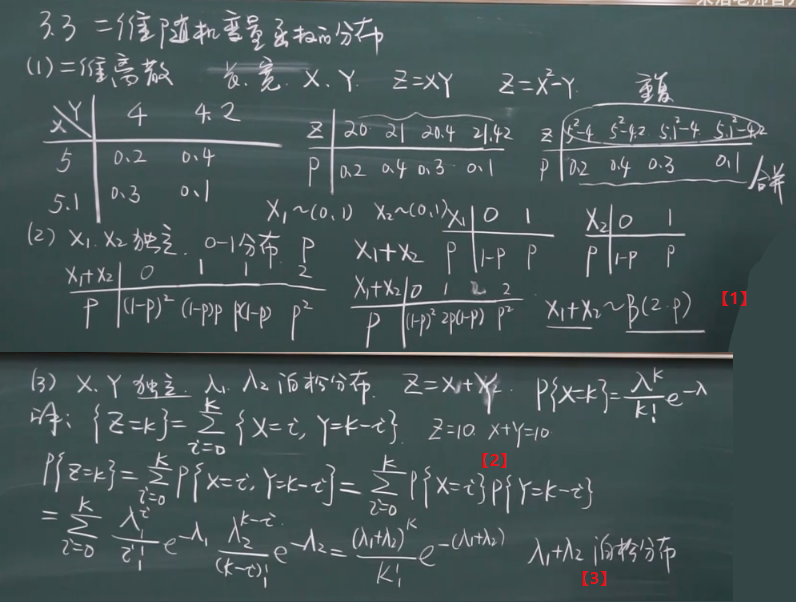 3.3 二维随机变量函数的分布
(1) 二维离散 长、宽 X、Y Z=XY Z=X²-Y 重复
X\Y 4 4.2
5 0.2 0.4
5.1 0.3 0.1
Z 20 21 20.4 21.42
P 0.2 0.4 0.3 0.1
Z 5²-4 5²-4.2 5.1²-4 5.1²-4.2
P 0.2 0.4 0.3 0.1 合并
X₁~(0,1) X₂~(0,1)
(2) X₁、X₂独立、0-1分布 P X₁+X₂
X₁ 0 1
P 1-P P
X₂ 0 1
P 1-P P
X₁+X₂ 0 1 1 2
P (1-P)² (1-P)P P(1-P) P²
X₁+X₂ 0 1 2
P (1-P)² 2P(1-P) P²
X₁+X₂~B(2,P) 【1】
(3) X、Y独立、λ₁、λ₂泊松分布、Z=X+Y. P{X=k}=λᵏ/k! e^-λ
证: {Z=k}=∑_{i=0}^{k}{X=i, Y=k-i}. Z=10 X+Y=10
【2】
P{Z=k}=∑_{i=0}^{k}P{X=i, Y=k-i}=∑_{i=0}^{k}P{X=i}P{Y=k-i}
=∑_{i=0}^{k} λ₁^i/i! e^-λ₁ λ₂^{k-i}/(k-i)! e^-λ₂ = (λ₁+λ₂)^k/k! e^-(λ₁+λ₂) λ₁+λ₂ 泊松分布
【3】